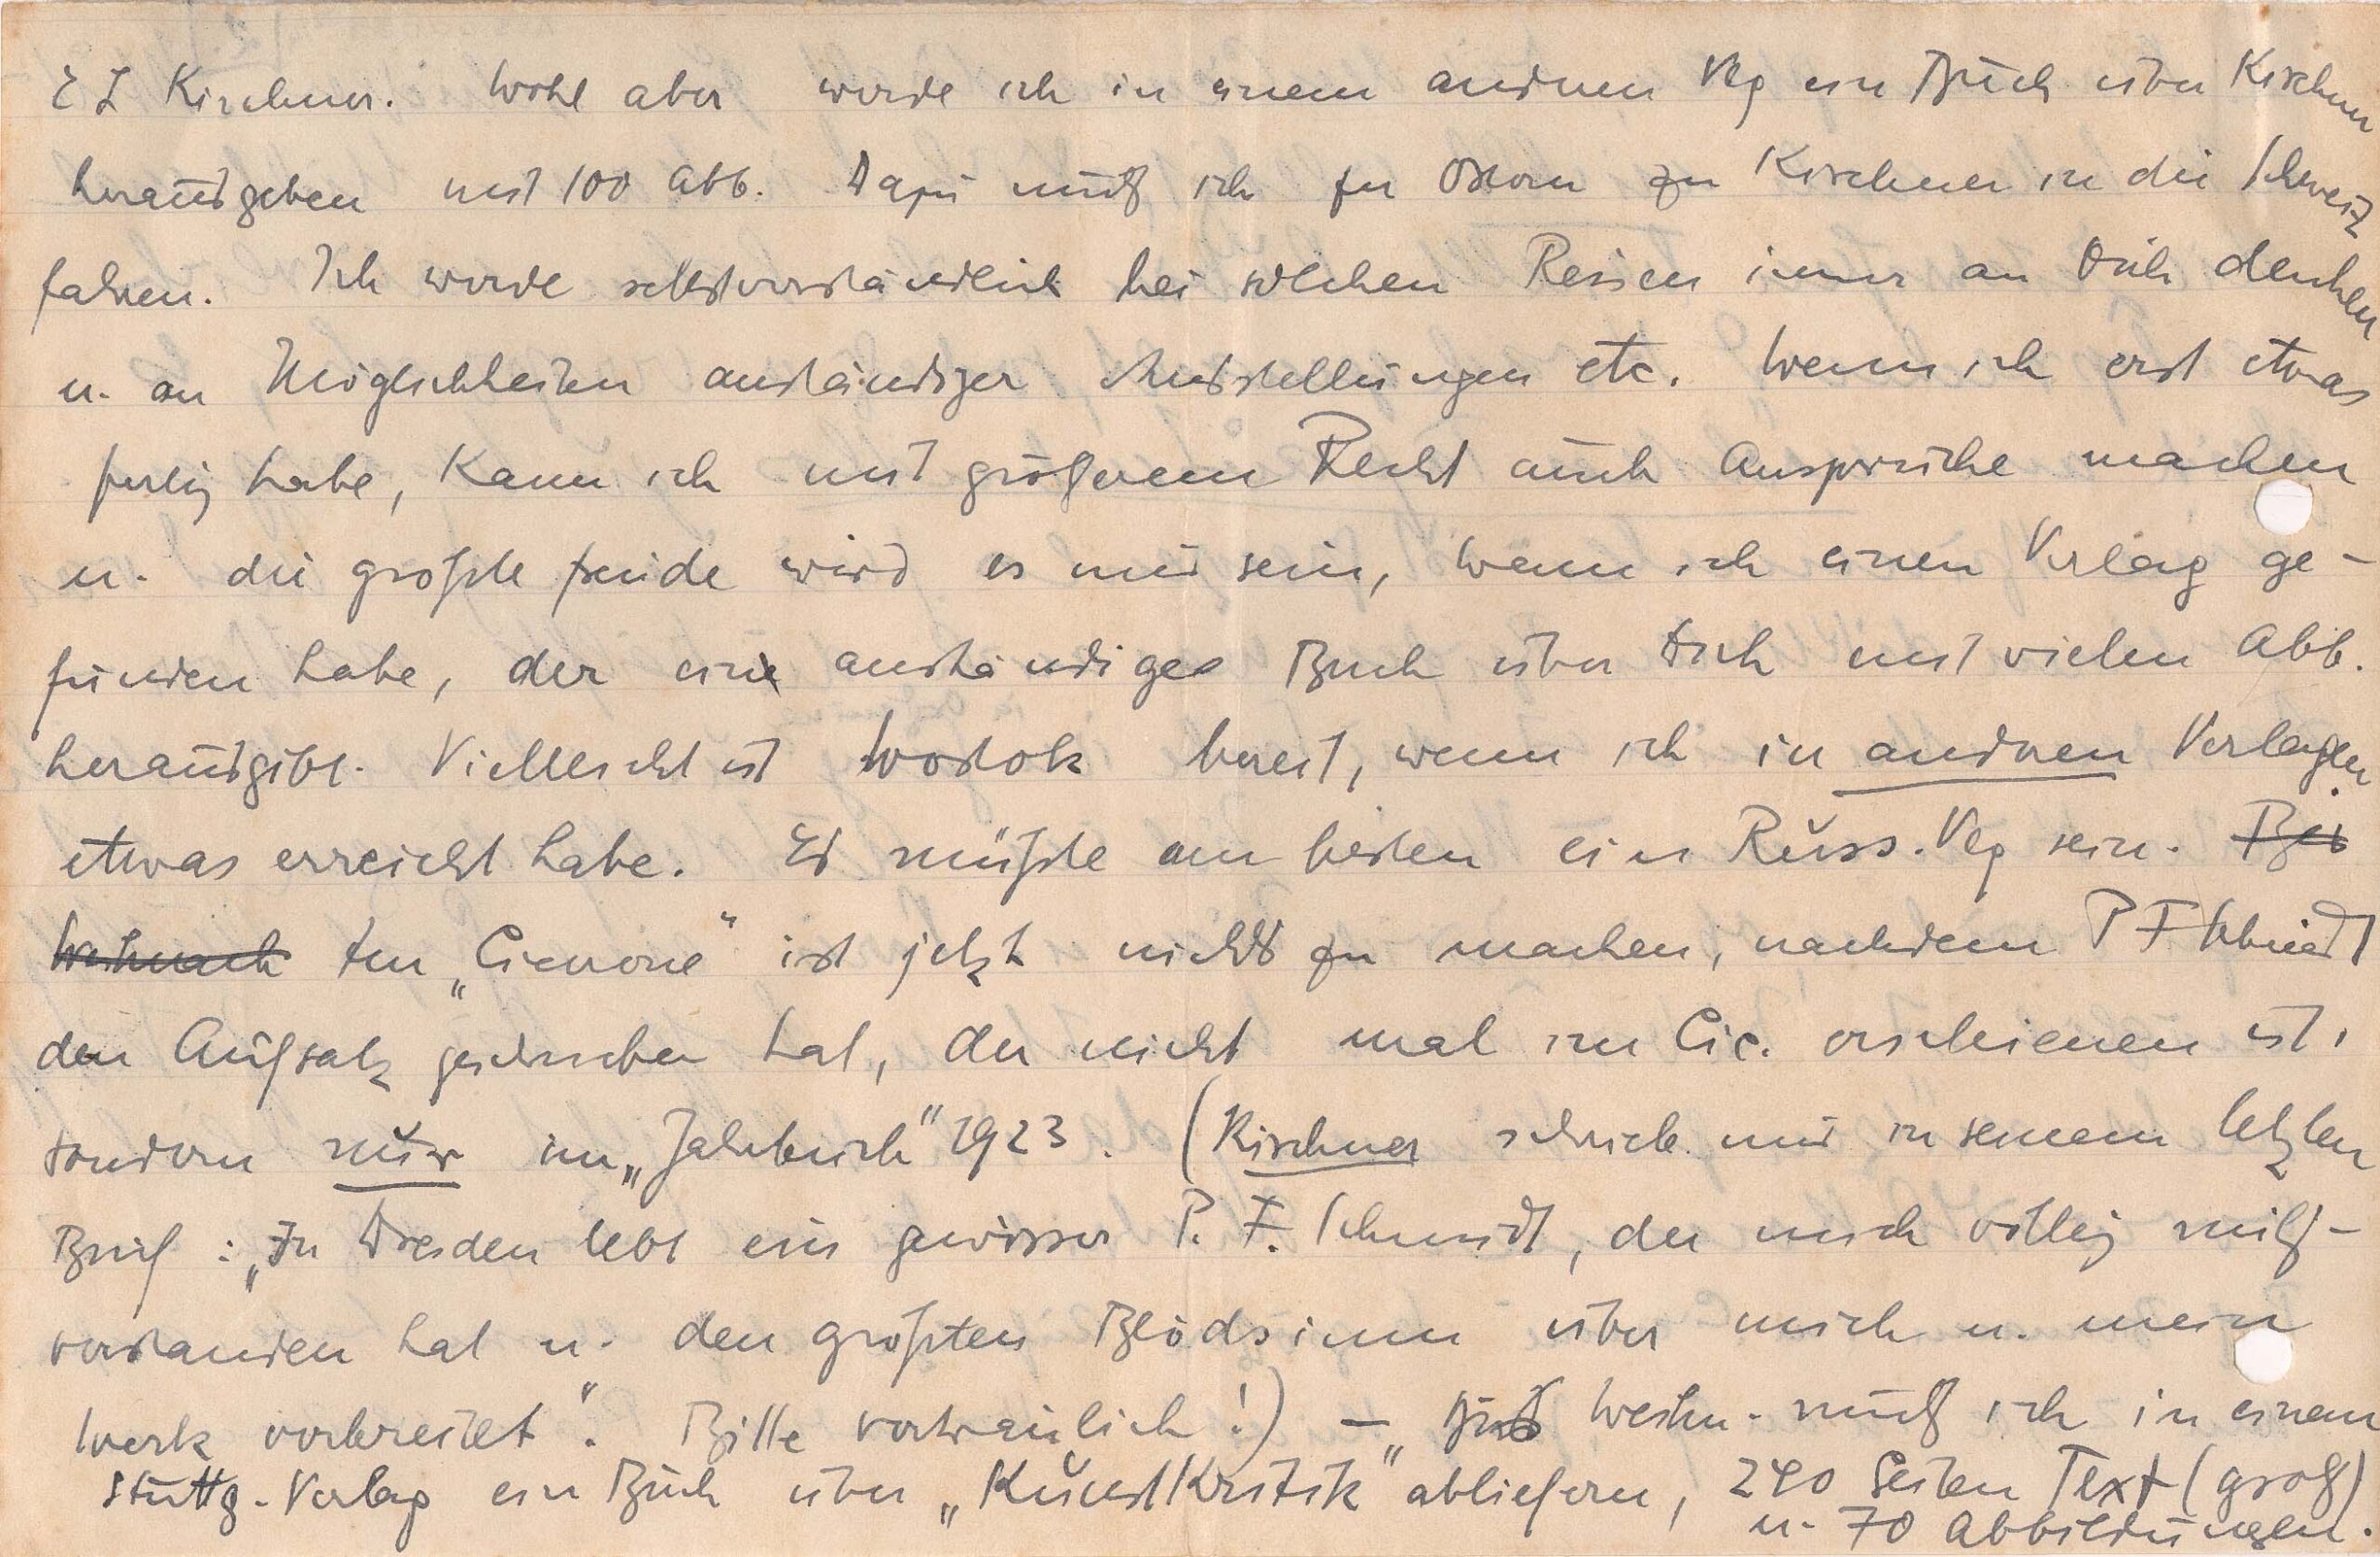 E L Kirchner. Wohl aber werde ich in einem andren Vlg ein Buch über Kirchner
herausgeben mit 100 Abb. Dazu muß ich zu Ostern zu Kirchner in die Schweiz
fahren. Ich werde selbstverständlich bei solchen Reisen immer an Dich denken
u. an Möglichkeiten anständiger Ausstellungen etc. Wenn ich erst etwas
fertig habe, kann ich mit größerem Recht auch Ansprüche machen
u. die größte Freude wird es mir sein, wenn ich einen Verlag ge-
funden habe, der ein anständiges Buch über Dich mit vielen Abb.
herausgibt. Vielleicht ist Wostok bereit, wenn ich in andren Verlagen
etwas erreicht habe. Es müßte am besten ein Russ. Vlg sein. Bei
Weihnach Im „Cicerone" ist jetzt nichts zu machen, nachdem P F Schmidt
den Aufsatz geschrieben hat, der nicht mal im Cic. erschienen ist,
sondern nur im „Jahrbuch" 1923. (Kirchner schrieb mir in seinem letzten
Brief: „In Dresden lebt ein gewisser P. F. Schmidt, der mich völlig miß-
verstanden hat u. den größten Blödsinn über mich u. mein
Werk verbreitet". Bitte vertraulich!) – Bis Weihn. muß ich in einem
Stuttg. Verlag ein Buch über „Kunstkritik" abliefern, 240 Seiten Text (groß)
u. 70 Abbildungen.